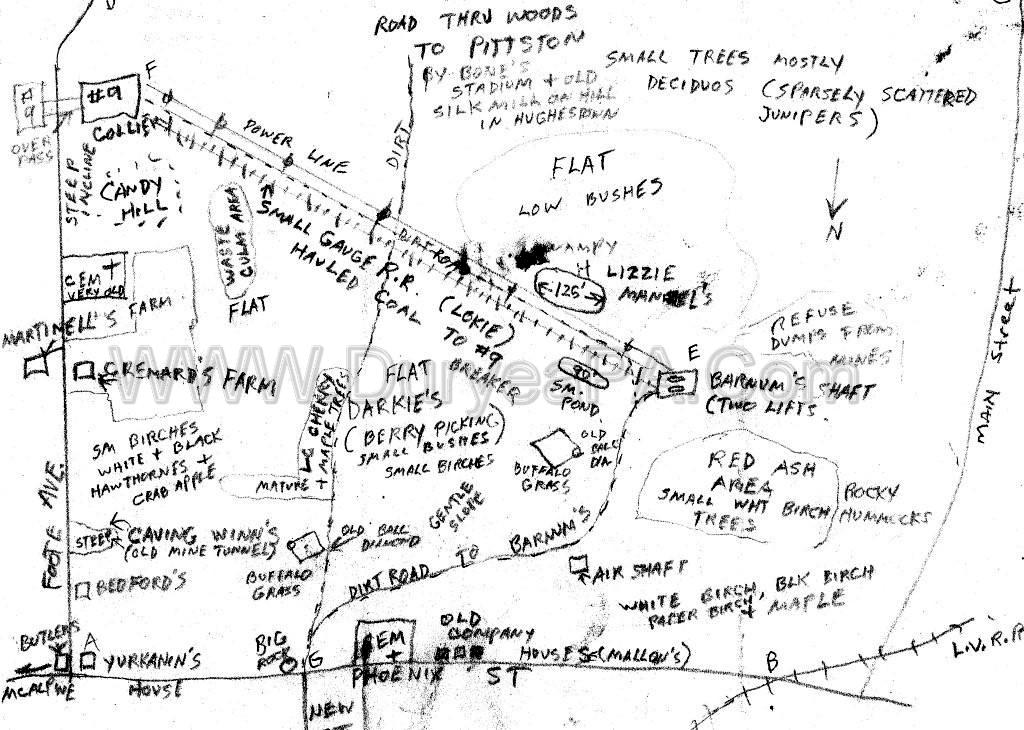 ROAD THRU WOODS
TO PITTSTON
BY BONE'S
STADIUM + OLD
SILK MILL ON HILL
IN HUGHESTOWN
SMALL TREES MOSTLY
DECIDUOS (SPARSELY SCATTERED
JUNIPERS)
N
F
#9
#9
COLLIERY
OVER
PASS
STEEP
INCLINE
CANDY
HILL
POWER LINE
DIRT
DIRT ROAD
SMALL GAUGE R.R. (LOKIE)
HAULED COAL TO #9
BREAKER
WASTE
CULM AREA
FLAT
FLAT
LOW BUSHES
SWAMPY
LIZZIE
125'
CEM
VERY OLD
MARTINELL'S
FARM
GREMARD'S FARM
REFUSE
DUMPS FROM
MINES
MAIN Street
E
BARNUM'S
SHAFT
(TWO LIFTS
80'
SM.
POND
WWW.DuryeaPA.Com
FLAT
DARKIE'S
(BERRY PICKING)
SMALL BUSHES
SMALL BIRCHES
LG CHERRY
MAPLE TREES
MATURE +
SM BIRCHES
WHITE + BLACK
HAWTHORNES +
CRAB APPLE
OLD
BALL
DIA.
BUFFALO
GRASS
RED ASH
AREA
SMALL WHT BIRCH
TREES
ROCKY
HUMMOCKS
GENTLE
SLOPE
FOOTE AVE.
STEEP
CAVING WINN'S
(OLD MINE TUNNEL)
OLD BALL
DIAMOND
BUFFALO
GRASS
DIRT ROAD TO BARNUM'S
AIR SHAFT
BEDFORD'S
WHITE BIRCH, BLK BIRCH
PAPER BIRCH + MAPLE
BUTLER'S
A
YURKANIN'S
HOUSE
MCALPINE
BIG
ROCK
G
CEM
PHOENIX ST
OLD
COMPANY
HOUSES (MALLON'S)
B
L.V.R.R.
NEW